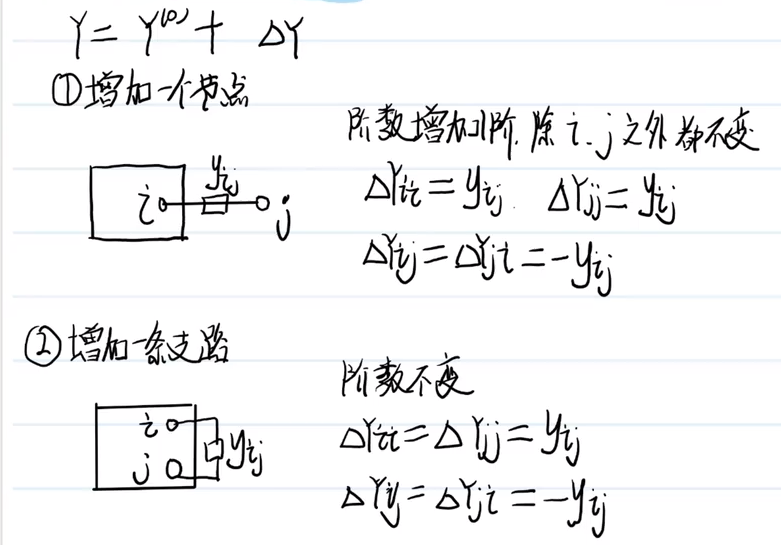 Y = Y⁽⁰⁾ + ΔY
①增加一个节点
阶数增加1阶,除i、j之外都不变
yij
i j
ΔYii = yij ΔYjj = yij
ΔYij = ΔYji = -yij
②增加一条支路
阶数不变
i
j yij
ΔYii = ΔYjj = yij
ΔYij = ΔYji = -yij